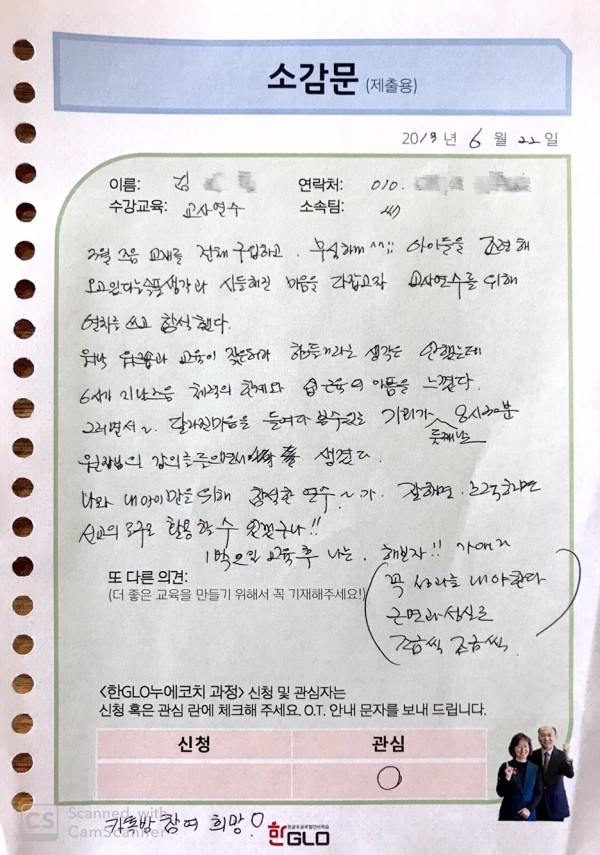 소감문 (제출용)
2013 년 6 월 22 일
이름: 김
연락처: 010.
수강교육: 교사연수
소속팀:
3월 즈음 교재를 전체 구입하고. 무식하게 ^^;; 아이들을 훈련해
생각과 시들해진 마음을 다잡고자 교사연수를 위해
연차를 쓰고 참석했다.
교육이 생각은 안했는데
6시가 지날즈음 체력의 한계와 근육의 아픔을 느꼈다.
그러면서~ 달라진마음을 들여다 볼수있는 기회가 8시30분
둘째날
원장님의 강의를 들으면서 생겼다.
나와 내 아이만을 위해 참석한 연수~가. 잘하면. 노력하면
선교의 도구로 활용할 수 있겠구나!!
1박2일 교육 후 나는. 해보자!! 가 아니라
꼭 성과를 내야한다
근면과 성실로
조금씩 조금씩.
또 다른 의견:
(더 좋은 교육을 만들기 위해서 꼭 기재해주세요!)
<한GLO누에코치 과정> 신청 및 관심자는
신청 혹은 관심 란에 체크해 주세요. O.T. 안내 문자를 보내 드립니다.
신청 관심
카톡방 참여 희망!
한GLO
CS Scanned with
CamScanner